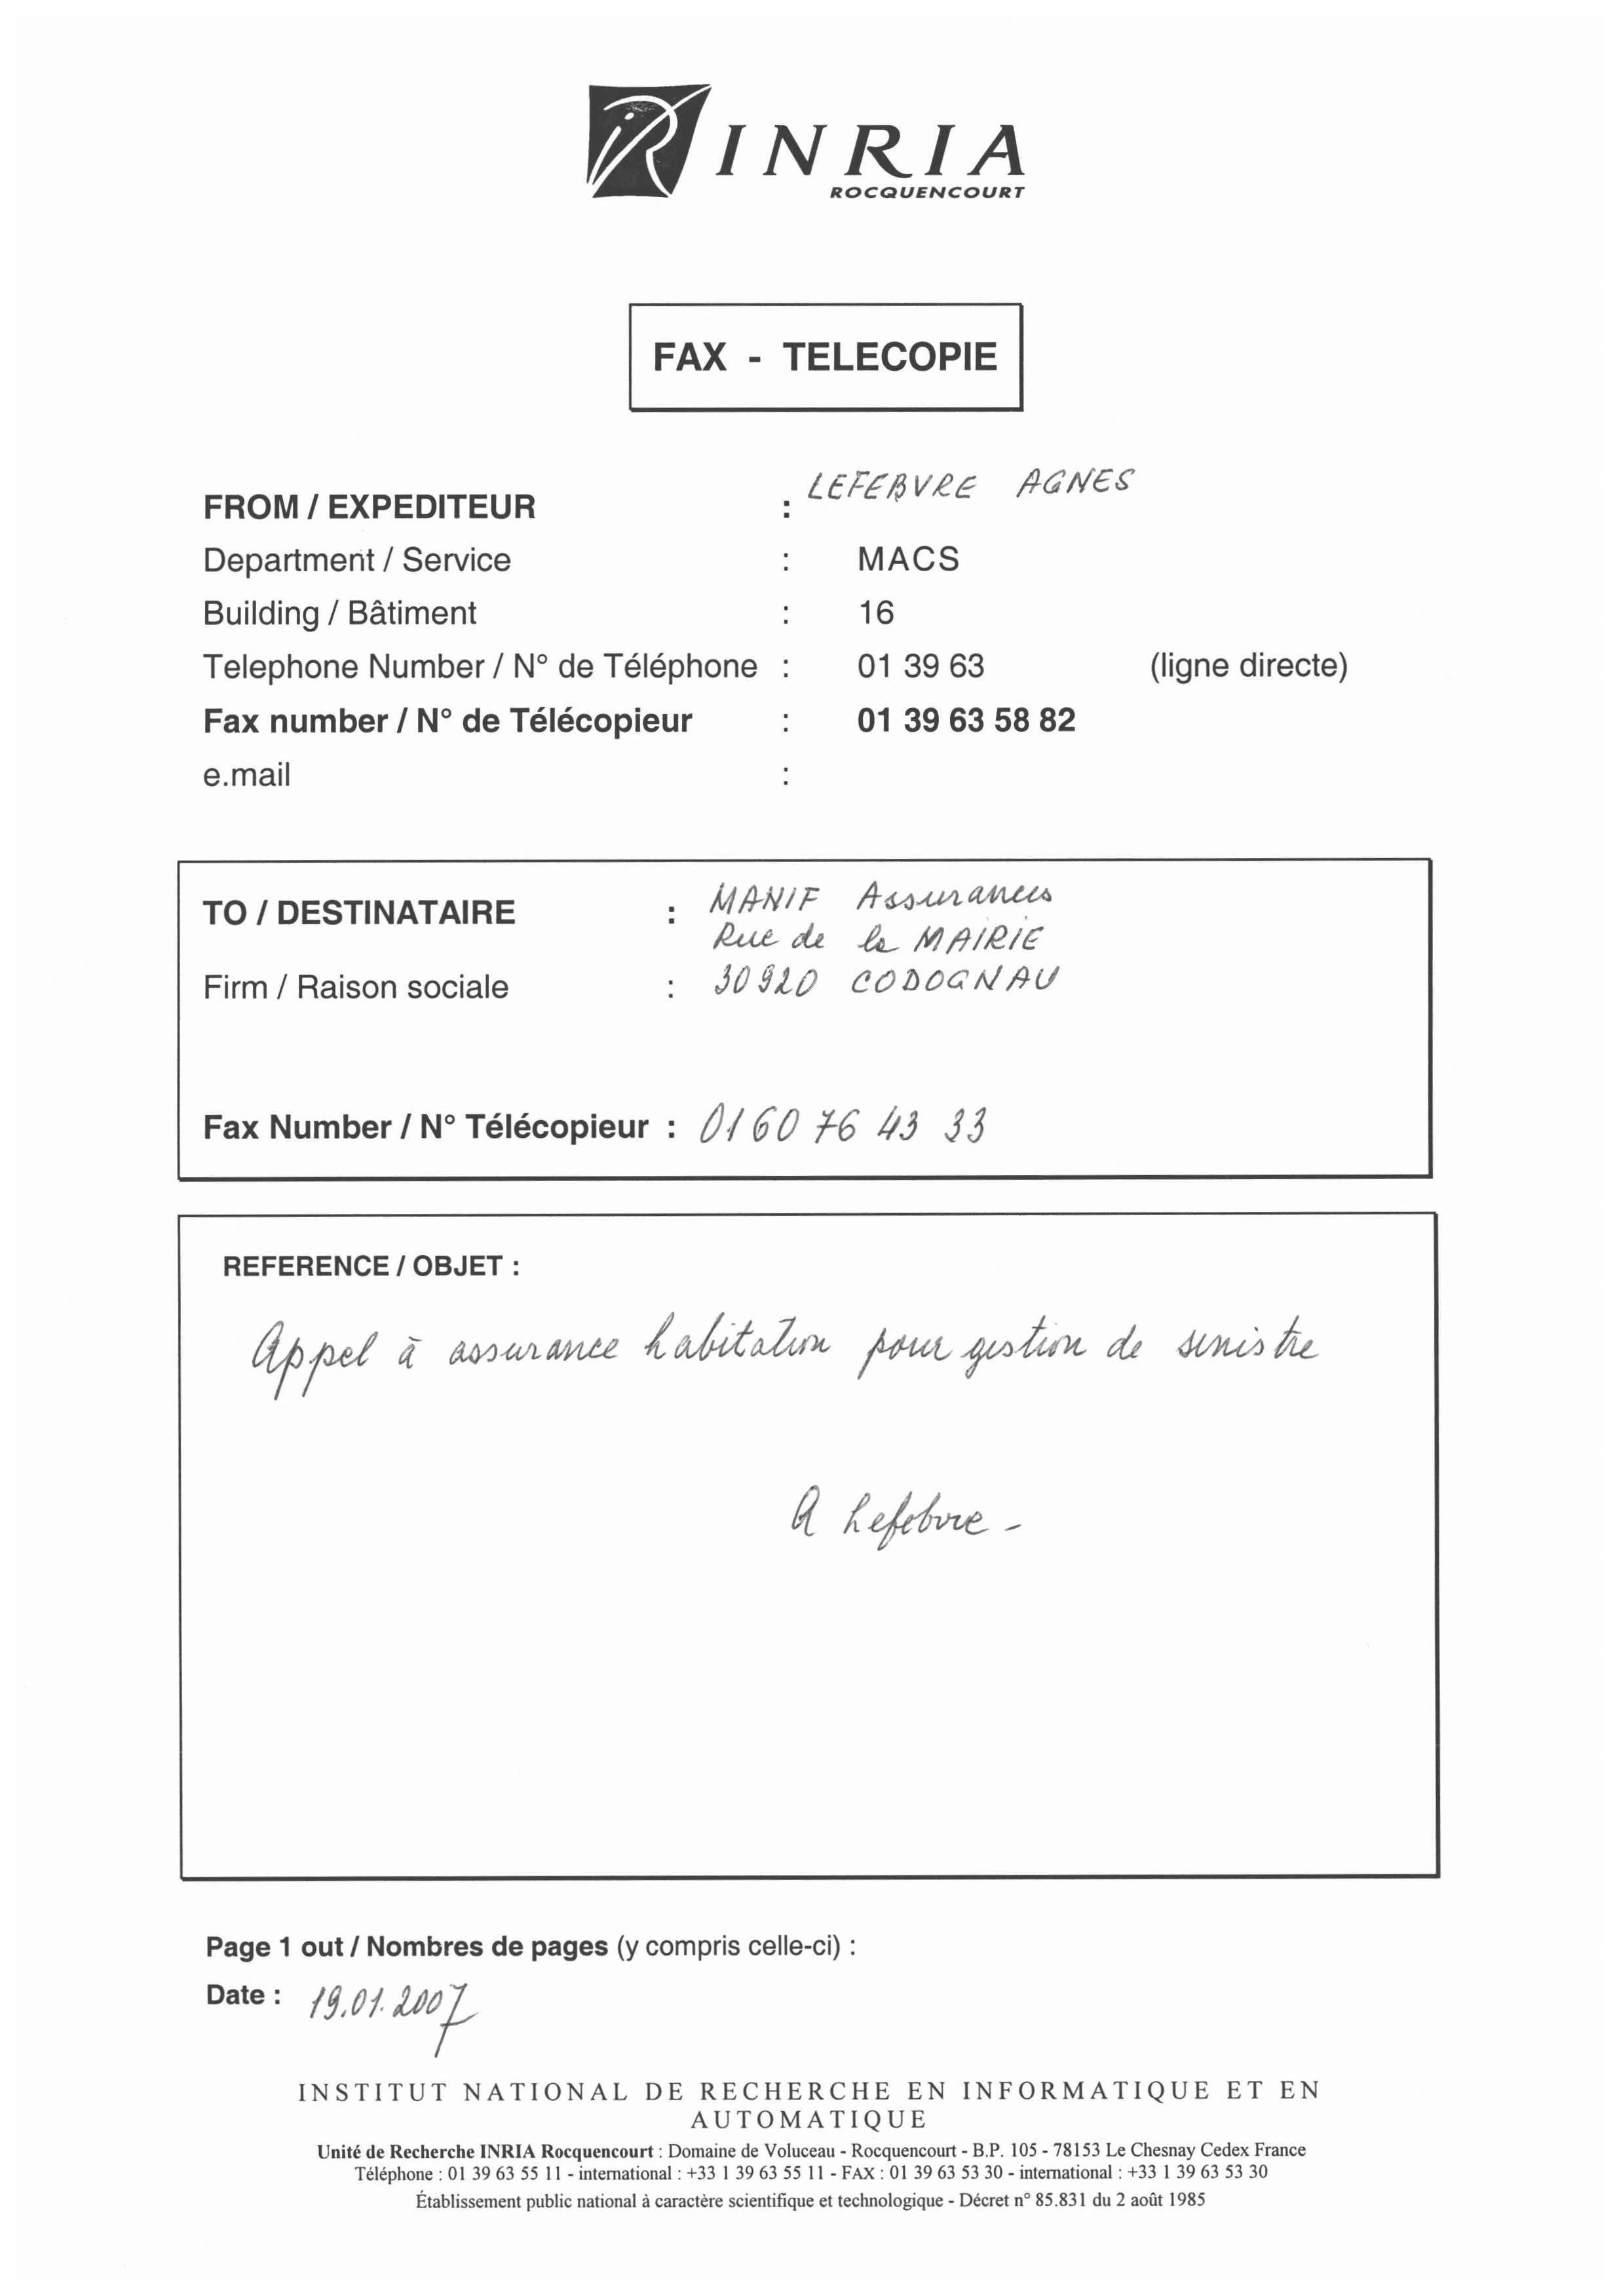 INRIA
ROCQUENCOURT
FAX - TELECOPIE
FROM / EXPEDITEUR : LEFEBVRE AGNES
Department / Service : MACS
Building / Bâtiment : 16
Telephone Number / N° de Téléphone : 01 39 63 (ligne directe)
Fax number / N° de Télécopieur : 01 39 63 58 82
e.mail :
TO / DESTINATAIRE : MANIF Assurances
Rue de la MAIRIE
Firm / Raison sociale : 30920 CODOGNAU
Fax Number / N° Télécopieur : 01 60 76 43 33
REFERENCE / OBJET :
Appel à assurance habitation pour gestion de sinistre
A Lefebvre -
Page 1 out / Nombres de pages (y compris celle-ci) :
Date : 19.01.2007
INSTITUT NATIONAL DE RECHERCHE EN INFORMATIQUE ET EN
AUTOMATIQUE
Unité de Recherche INRIA Rocquencourt : Domaine de Voluceau - Rocquencourt - B.P. 105 - 78153 Le Chesnay Cedex France
Téléphone : 01 39 63 55 11 - international : +33 1 39 63 55 11 - FAX : 01 39 63 53 30 - international : +33 1 39 63 53 30
Établissement public national à caractère scientifique et technologique - Décret n° 85.831 du 2 août 1985